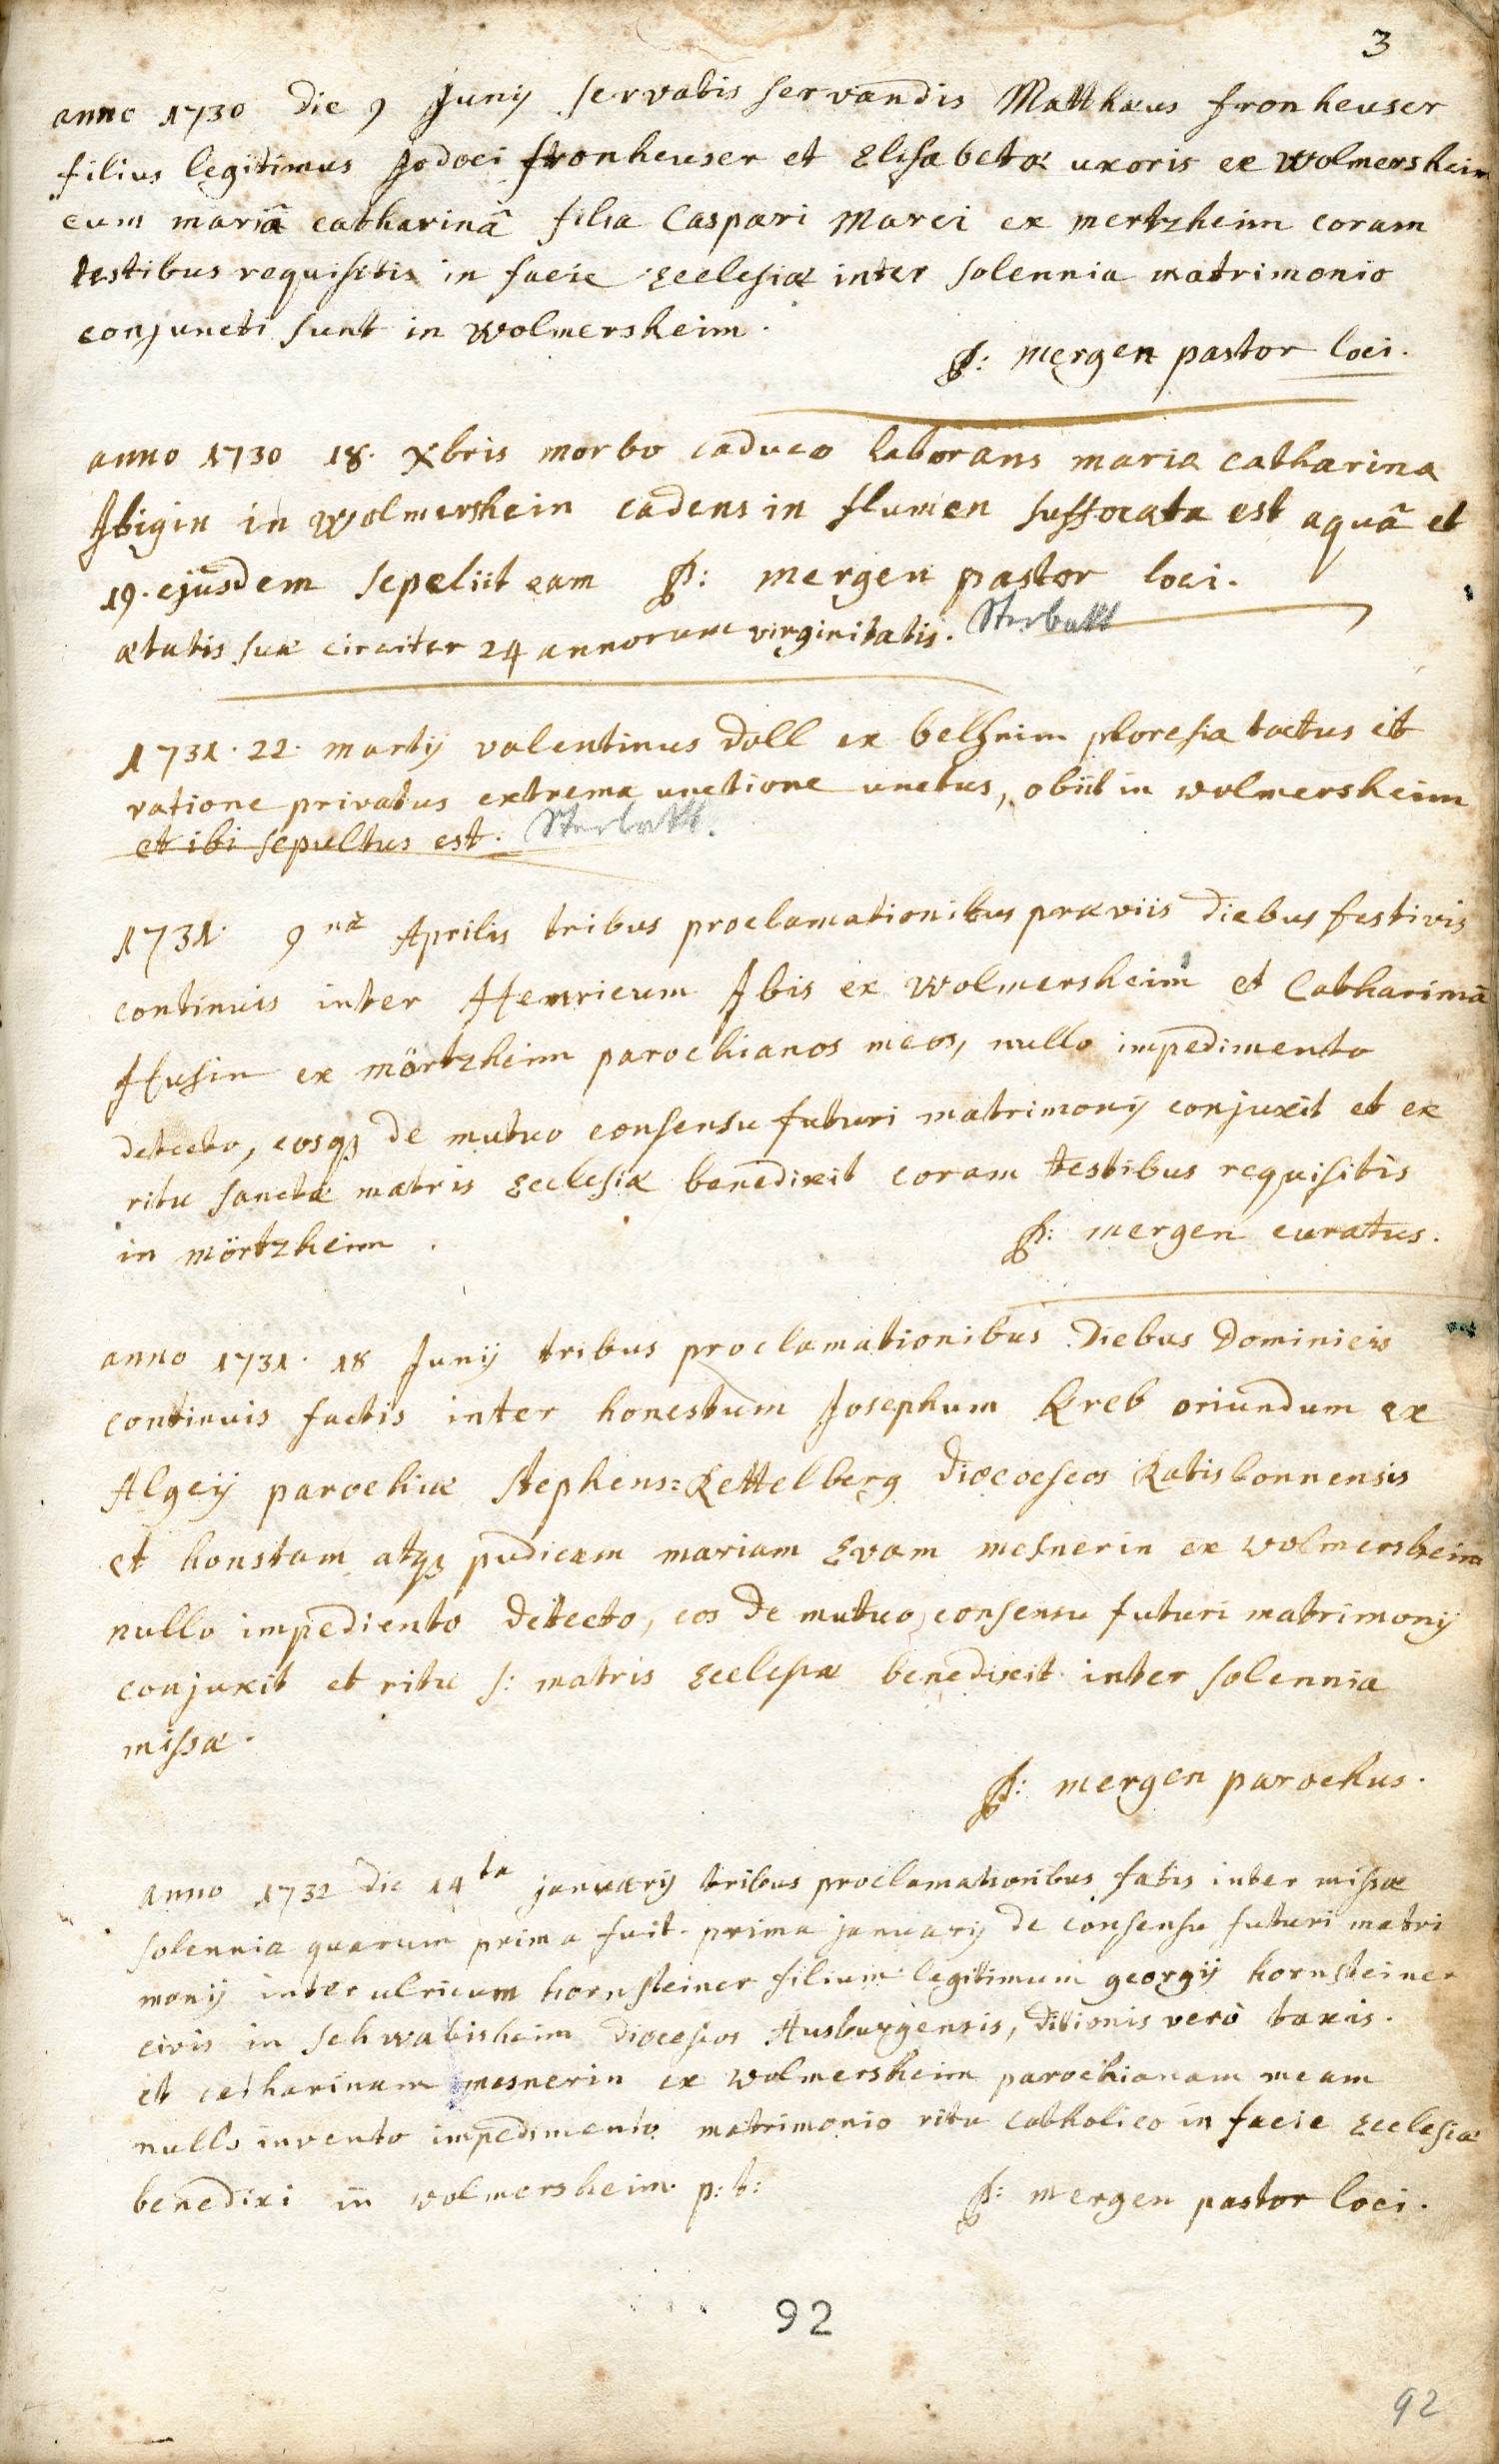 3
anno 1730 die 9 Junij servatis servandis Matthæus fronheuser
filius legitimus Jodoci fronheuser et Elisabetæ uxoris ex wolmersheim
cum mariâ catharinâ filia Caspari Marci ex mertzheim coram
testibus requisitis in facie Ecclesiæ inter solennia matrimonio
conjuncti sunt in wolmersheim.
P: mergen pastor loci.
anno 1730 18. Xbris morbo caduco laborans maria catharina
Ibigin in wolmershein cadens in flumen suffocata est aquâ et
19. ejusdem sepeliit eam P: mergen pastor loci.
ætatis suæ circiter 24 annorum virginitatis. Sterbakt
1731. 22. martij valentinus doll ex belheim ploresia tactus et
ratione privatus extrema unctione unctus, obiit in wolmersheim
et ibi sepultus est. Sterbakt.
1731. 9na Aprilis tribus proclamationibus præviis diebus festivis
continuis inter Henricum Ibis ex wolmersheim et Catharinâ
Husin ex mörtzheim parochianos meos, nullo impedimento
detecto, eosq de mutuo consensu futuri matrimonij conjuxit et ex
ritu sanctæ matris Ecclesiæ benedixit coram testibus requisitis
in mörtzheim.
P: mergen curatus.
anno 1731. 18 Junij tribus proclamationibus diebus Dominicis
continuis factis inter honestum Josephum Kreb oriundum ex
Algeij parochiæ Stephens=Rettelberg dioecoeseos Ratisbonnensis
et honstam atq pudicam mariam Evam mesnerin ex wolmersheim
nullo impediento detecto, eos de mutuo consensu futuri matrimonij
conjuxit et ritu s: matris Ecclesiæ benedixit inter solennia
missæ.
P: mergen parochus.
anno 1732 die 14ta januarij tribus proclamationibus fatis inter missæ
solennia quarum prima fuit prima januarij de consensu futuri matri
monij inter ulricum hornsteiner filium legitimum georgij hornsteiner
civis in schwabisheim dioceseos Ausburgensis, ditionis verò taxis.
et catharinam mesnerin ex wolmersheim parochianam meam
nullo invento impedimento matrimonio ritu catholico in facie Ecclesiæ
benedixi in wolmersheim p: t:
P: mergen pastor loci.
92
92